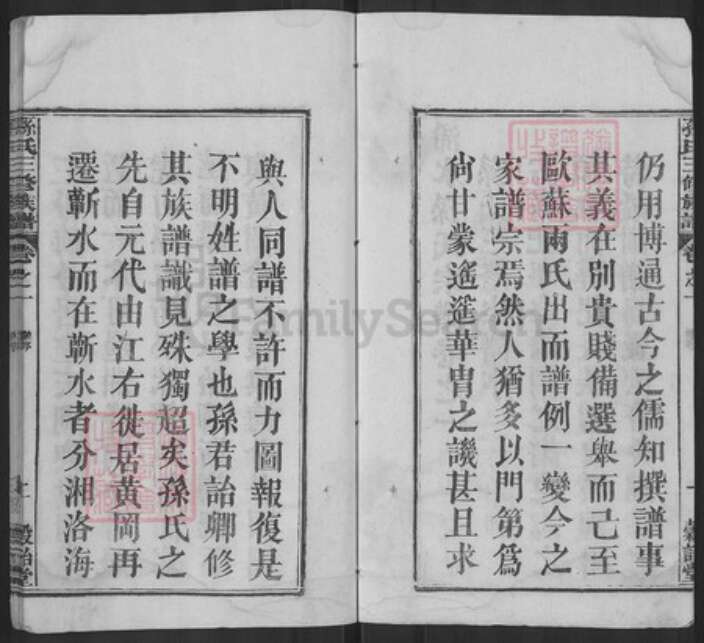 仍用博通古今之儒知撰譜事
其義在別貴賤備選舉而已至
歐蘇兩氏出而譜例一變今之
家譜宗焉然人猶多以門第爲
尙甘蒙遙遥華胄之譏甚且求
與人同譜不許而力圖報復是
不明姓譜之學也孫君詒卿修
其族譜識見殊獨超矣孫氏之
先自元代由江右徙居黃岡再
遷蘄水而在蘄水者分湘洛海
孫氏三修族譜
卷之一
FamilySearch